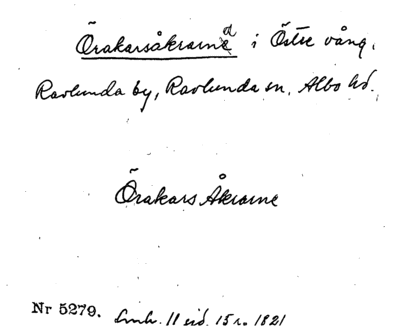 Örakarsåkrarne a i Östre vång.
Ravlunda by, Ravlunda sn. Albo hd.
Örakars Åkrarne
Nr 5279. Lmh. 11 sid. 15 r. 1821